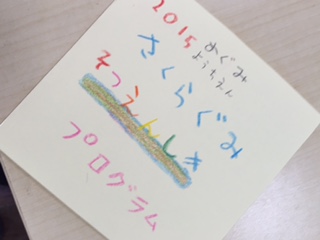 2015
めぐみ
ようちえん
さくらぐみ
そつえんしき
プログラム